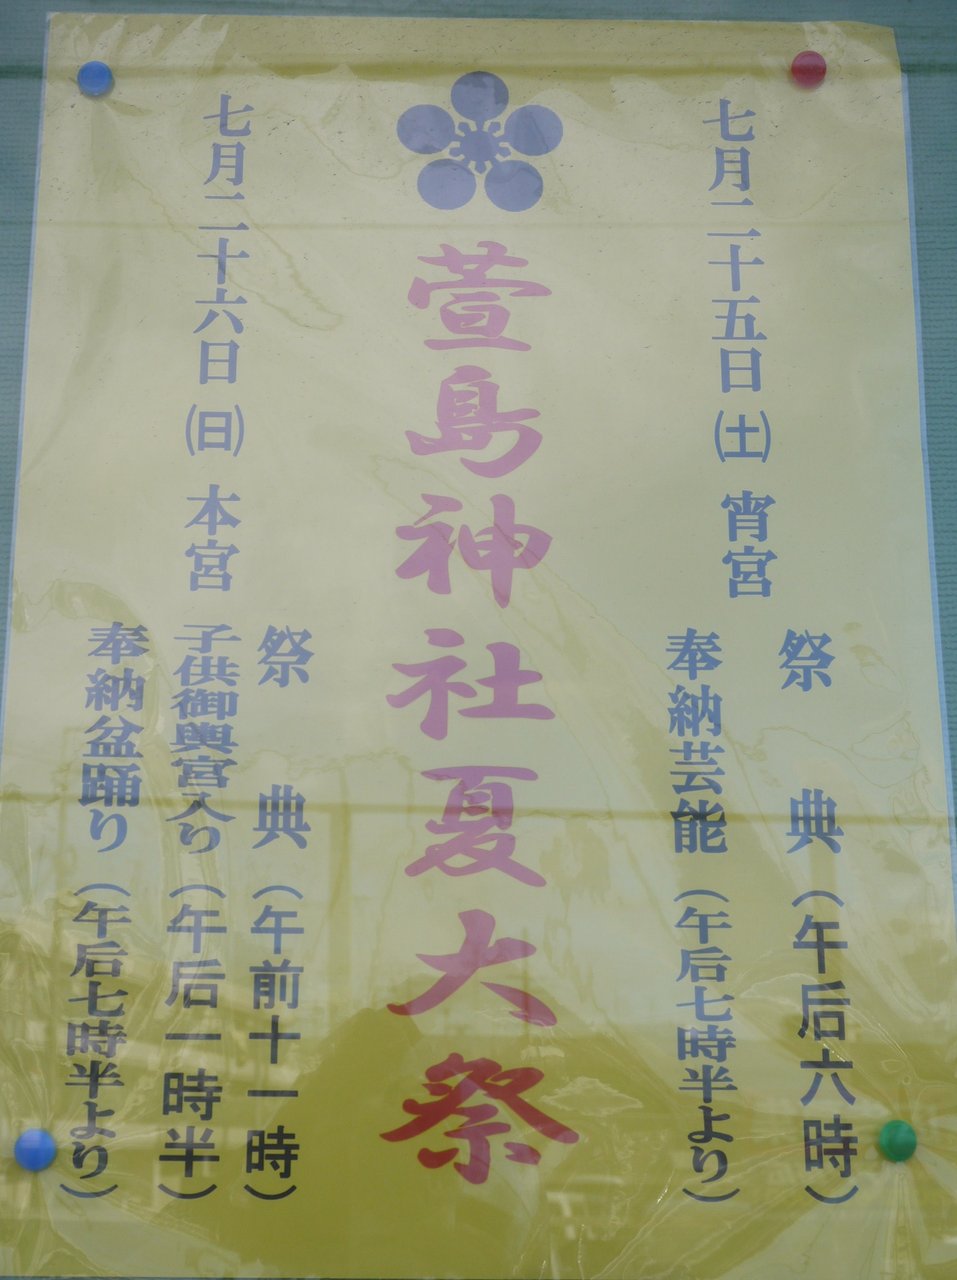 七月二十五日(土) 宵宮
祭典(午后六時)
奉納芸能(午后七時半より)
萱島神社夏大祭
七月二十六日(日) 本宮
祭典(午前十一時)
子供御輿宮入り(午后一時半)
奉納盆踊り(午后七時半より)